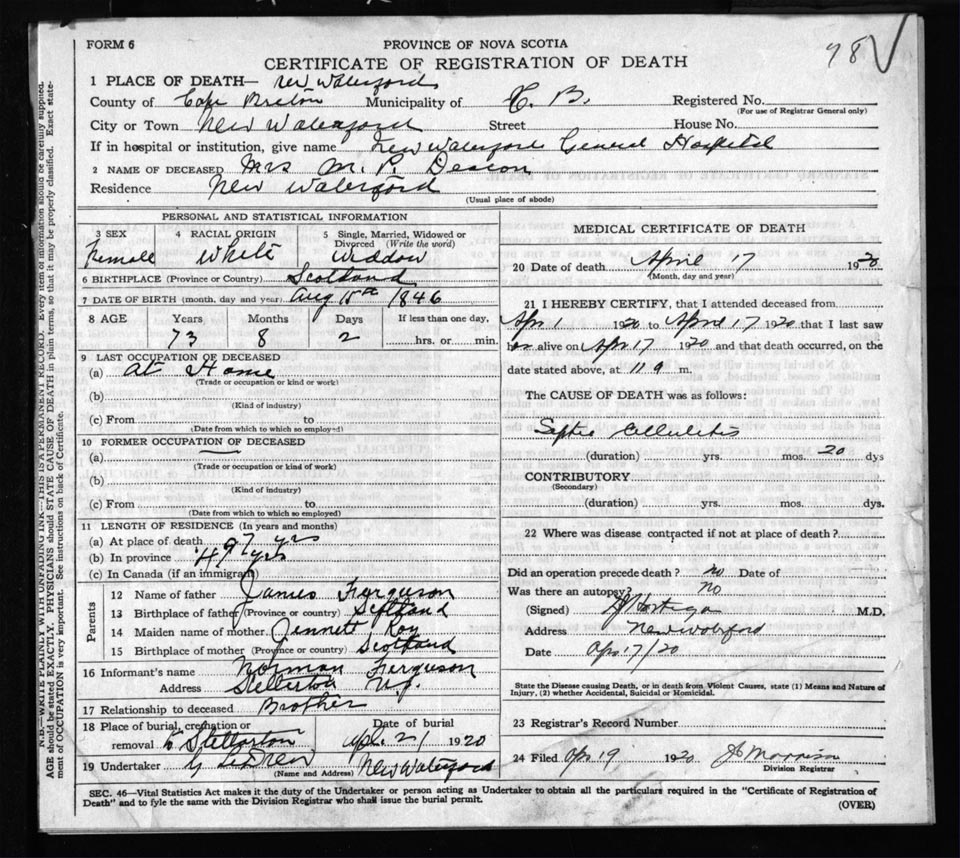 FORM 6
PROVINCE OF NOVA SCOTIA
98
CERTIFICATE OF REGISTRATION OF DEATH
1 PLACE OF DEATH— New Waterford
County of Cape Breton Municipality of C. B. Registered No.
(For use of Registrar General only)
City or Town New Waterford Street House No.
If in hospital or institution, give name New Waterford General Hospital
2 NAME OF DECEASED Mrs M. P. Deacon
Residence New Waterford
(Usual place of abode)
PERSONAL AND STATISTICAL INFORMATION
3 SEX 4 RACIAL ORIGIN 5 Single, Married, Widowed or Divorced (Write the word)
Female White Widdow
6 BIRTHPLACE (Province or Country) Scotland
7 DATE OF BIRTH (month, day and year) Aug 15th 1846
8 AGE Years Months Days If less than one day,
73 8 2 hrs. or min.
9 LAST OCCUPATION OF DECEASED
(a) At Home
(Trade or occupation or kind or work)
(b)
(Kind of industry)
(c) From to
(Date from which to which so employed)
10 FORMER OCCUPATION OF DECEASED
(a) —
(Trade or occupation or kind of work)
(b)
(Kind of industry)
(c) From to
(Date from which to which so employed)
11 LENGTH OF RESIDENCE (In years and months)
(a) At place of death yrs
(b) In province yrs
(c) In Canada (if an immigrant)
Parents
12 Name of father James Ferguson
13 Birthplace of father (Province or country) Scotland
14 Maiden name of mother Jennett Roy
15 Birthplace of mother (Province or country) Scotland
16 Informant's name Norman Ferguson
Address Stellerton N.S.
17 Relationship to deceased Brother
18 Place of burial, cremation or removal to Stellarton Date of burial Apl. 21 1920
19 Undertaker New Waterford
(Name and Address)
MEDICAL CERTIFICATE OF DEATH
20 Date of death April 17 1920
(Month, day and year)
21 I HEREBY CERTIFY, that I attended deceased from
Apr 1 1920 to April 17 1920 that I last saw
her alive on Apr 17 1920 and that death occurred, on the
date stated above, at 11 9 m.
The CAUSE OF DEATH was as follows:
Septic Cellulitis
(duration) yrs. mos. 20 dys
CONTRIBUTORY
(Secondary)
(duration) yrs. mos. dys.
22 Where was disease contracted if not at place of death?
Did an operation precede death? no Date of
Was there an autopsy? No
(Signed) M.D.
Address New Waterford
Date Apr 17/20
State the Disease causing Death, or in death from Violent Causes, state (1) Means and Nature of
Injury, (2) whether Accidental, Suicidal or Homicidal.
23 Registrar's Record Number
24 Filed Apr 19 1920 Morrison
Division Registrar
SEC. 46—Vital Statistics Act makes it the duty of the Undertaker or person acting as Undertaker to obtain all the particulars required in the "Certificate of Registration of
Death" and to fyle the same with the Division Registrar who shall issue the burial permit.
(OVER)
N.B.—WRITE PLAINLY WITH UNFADING INK—THIS IS A PERMANENT RECORD. Every item of information should be carefully supplied.
AGE should be stated EXACTLY. PHYSICIANS should STATE CAUSE OF DEATH in plain terms, so that it may be properly classified. Exact state-
ment of OCCUPATION is very important. See instructions on back of Certificate.